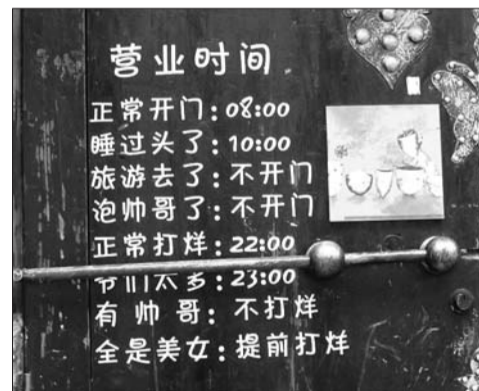 营业时间
正常开门:08:00
睡过头了:10:00
旅游去了:不开门
泡帅哥了:不开门
正常打烊:22:00
爷们太多:23:00
有帅哥:不打烊
全是美女:提前打烊